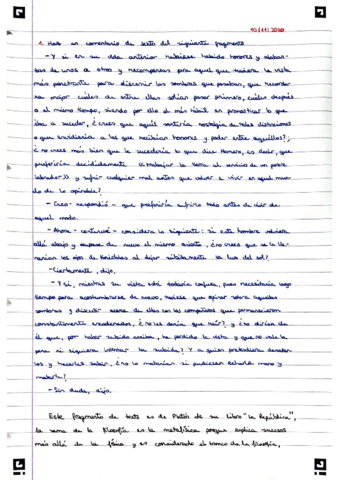 10/11/2020
1. Haz un comentario de texto del siguiente fragmento
- Y si en su vida anterior hubiese habido honores y alaban-
zas de unos a otro y recompensas para aquel que tuviera la vista
más penetrante para discernir las sombras que pasaban, que recorda-
ra mejor cuáles de entre ellas solían pasar primero, cuáles después
o al mismo tiempo, siendo por ello el más hábil en pronosticar lo que
iba a suceder, ¿crees que aquél sentiría nostalgia de tales distinciones
o que envidiaría a los que recibían honores y poder entre aquéllos?;
¿no crees más bien que le sucedería lo que dice Homero, es decir, que
preferiría decididamente «trabajar la tierra al servicio de un pobre
labrador» y sufrir cualquier mal antes que volver a vivir en aquel mun-
do de lo opinable?
- Creo - respondió - que preferiría sufrirlo todo antes de vivir de
aquel modo.
- Ahora - continué - considera lo siguiente: si este hombre volviera
allá abajo y ocupase de nuevo el mismo asiento, ¿no crees que se le lle-
narían los ojos de tinieblas al dejar súbitamente la luz del sol?
- Ciertamente, dijo.
- Y si, mientras su vista está todavía confusa, pues necesitaría largo
tiempo para acostumbrarse de nuevo, tuviese que opinar sobre aquellas
sombras y discutir acerca de ellas con los compañeros que permanecieron
constantemente encadenados, ¿no les daría que reír?; y ¿no dirían de
él que, por haber subido arriba, ha perdido la vista y que no vale la
pena ni siquiera intentar la subida? Y a quien pretendiera desatar-
los y hacerles subir, ¿no lo matarían si pudiesen echarle mano y
matarle?
- Sin duda, dijo.
Este fragmento de texto es de Platón de su libro "La República",
la rama de la filosofía es la metafísica porque explica sucesos
más allá de la física y es considerado el tronco de la filosofía,